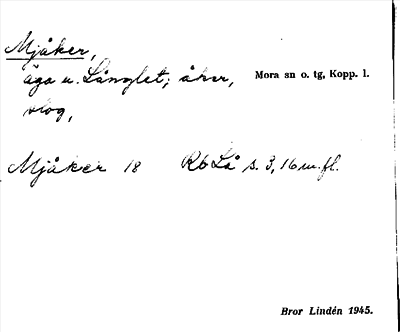 Mjåker,
äga u. Långlet; åker, Mora sn o. tg, Kopp. l.
skog,
Mjåker 18 Rb Lå s. 3, 16 m. fl.
Bror Lindén 1945.